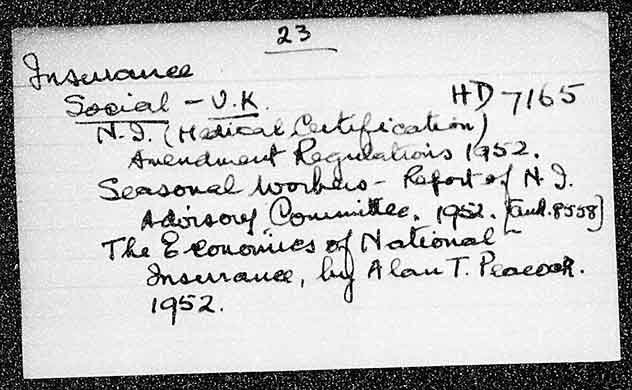 23
Insurance
Social - U.K. HD 7165
N.I. (Medical Certification)
Amendment Regulations 1952.
Seasonal Workers - Report of N.I.
Advisory Committee. 1952. [Cmd. 8558]
The Economics of National
Insurance, by Alan T. Peacock.
1952.